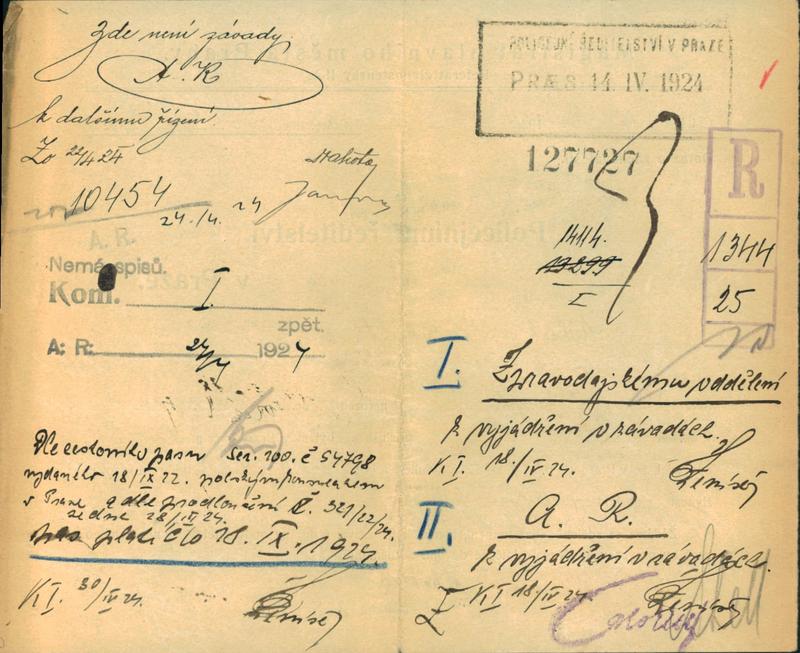 Zde není závady
A. R
k dalšímu řízení
Zo 22/4 24
10454
24./4. 24
A. R.
Nemá spisů.
Kom. I.
zpět.
A: R: 24/4 1924
Dle cestovního pasu Ser. 100. č 54798
vydaného 18/IX 22. polským konsulatem
v Praze a dle prodloužení č. 321/22/24.
ze dne 28/IV 24.
pas platí do 18. IX. 1924.
K I. 30/IV 24.
POLICEJNÍ ŘEDITELSTVÍ V PRAZE
PRÆS 14. IV. 1924
127727
R
1344
25
1414.
13299
I
I. Zpravodajskému oddělení
k vyjádření o závadách.
K I. 18/IV 24.
II. A. R.
k vyjádření o závadách.
K I 18/IV 24.